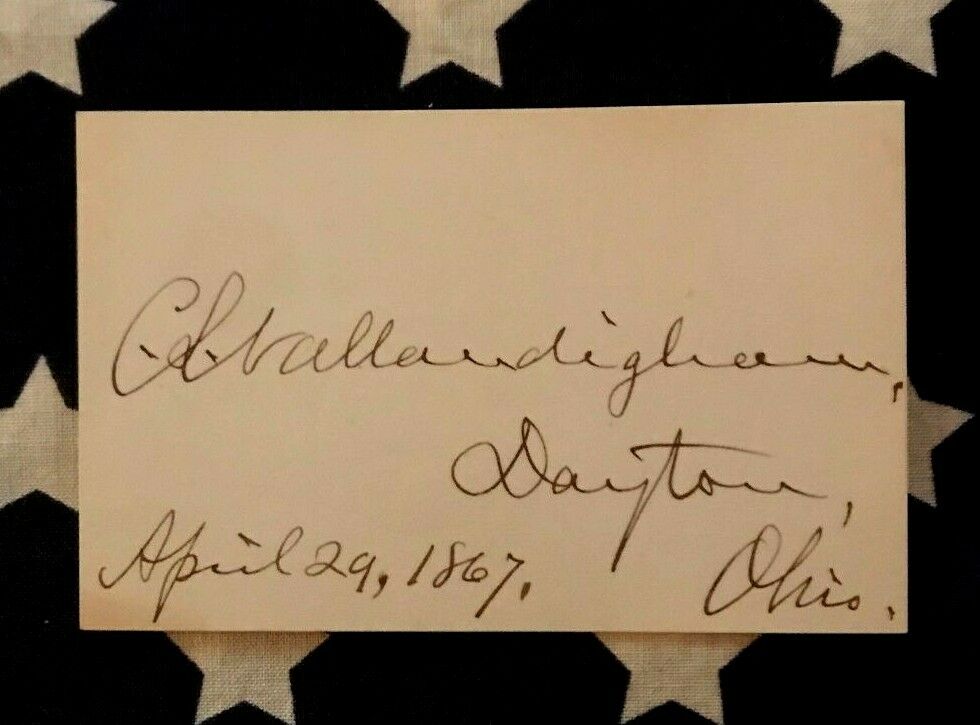 C. L. Vallandigham,
Dayton,
Ohio.
April 29, 1867.